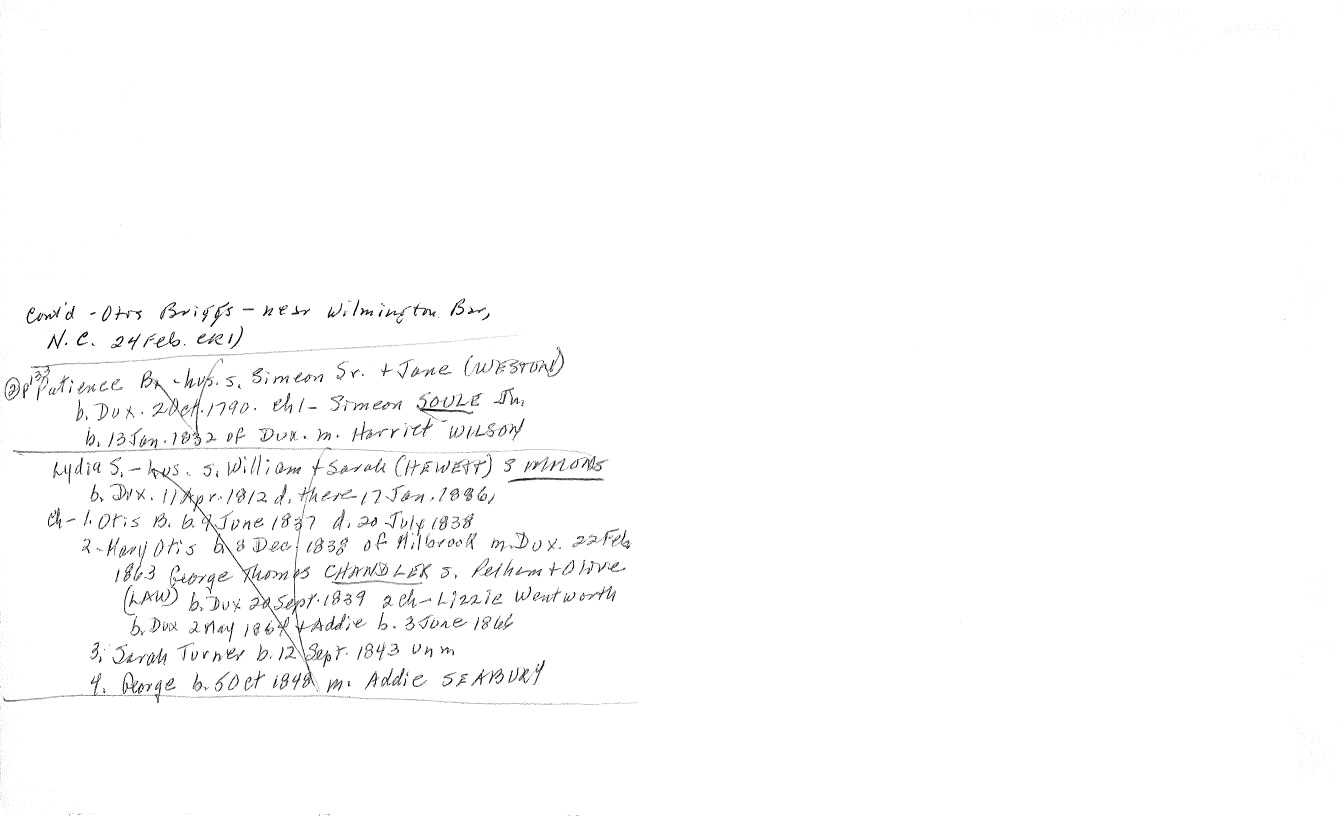 Cont'd - Otis Briggs - near Wilmington Bar,
N.C. 24 Feb. CR1)
② p 133 Patience B. - hus. s. Simeon Sr. + Jane (WESTON)
b. Dux. 2 Oct. 1790. ch 1 - Simeon SOULE Jr.
b. 13 Jan. 1832 of Dux. m. Harriet WILSON
Lydia S. - hus. s. William + Sarah (HEWETT) SIMMONS
b. Dux. 11 Apr. 1812 d. there 17 Jan. 1886,
ch - 1. Otis B. b. 4 June 1837 d. 20 July 1838
2 - Mary Otis b. 8 Dec. 1838 of Milbrook m. Dux. 22 Feb
1863 George Thomas CHANDLER s. Pelham + Olive
(LAW) b. Dux Sept. 1839 2 ch - Lizzie Wentworth
b. Dux 2 May 1864 + Addie b. 3 June 1866
3. Sarah Turner b. 12 Sept. 1843 unm
4. George b. 5 Oct 1848 m. Addie SEABURY